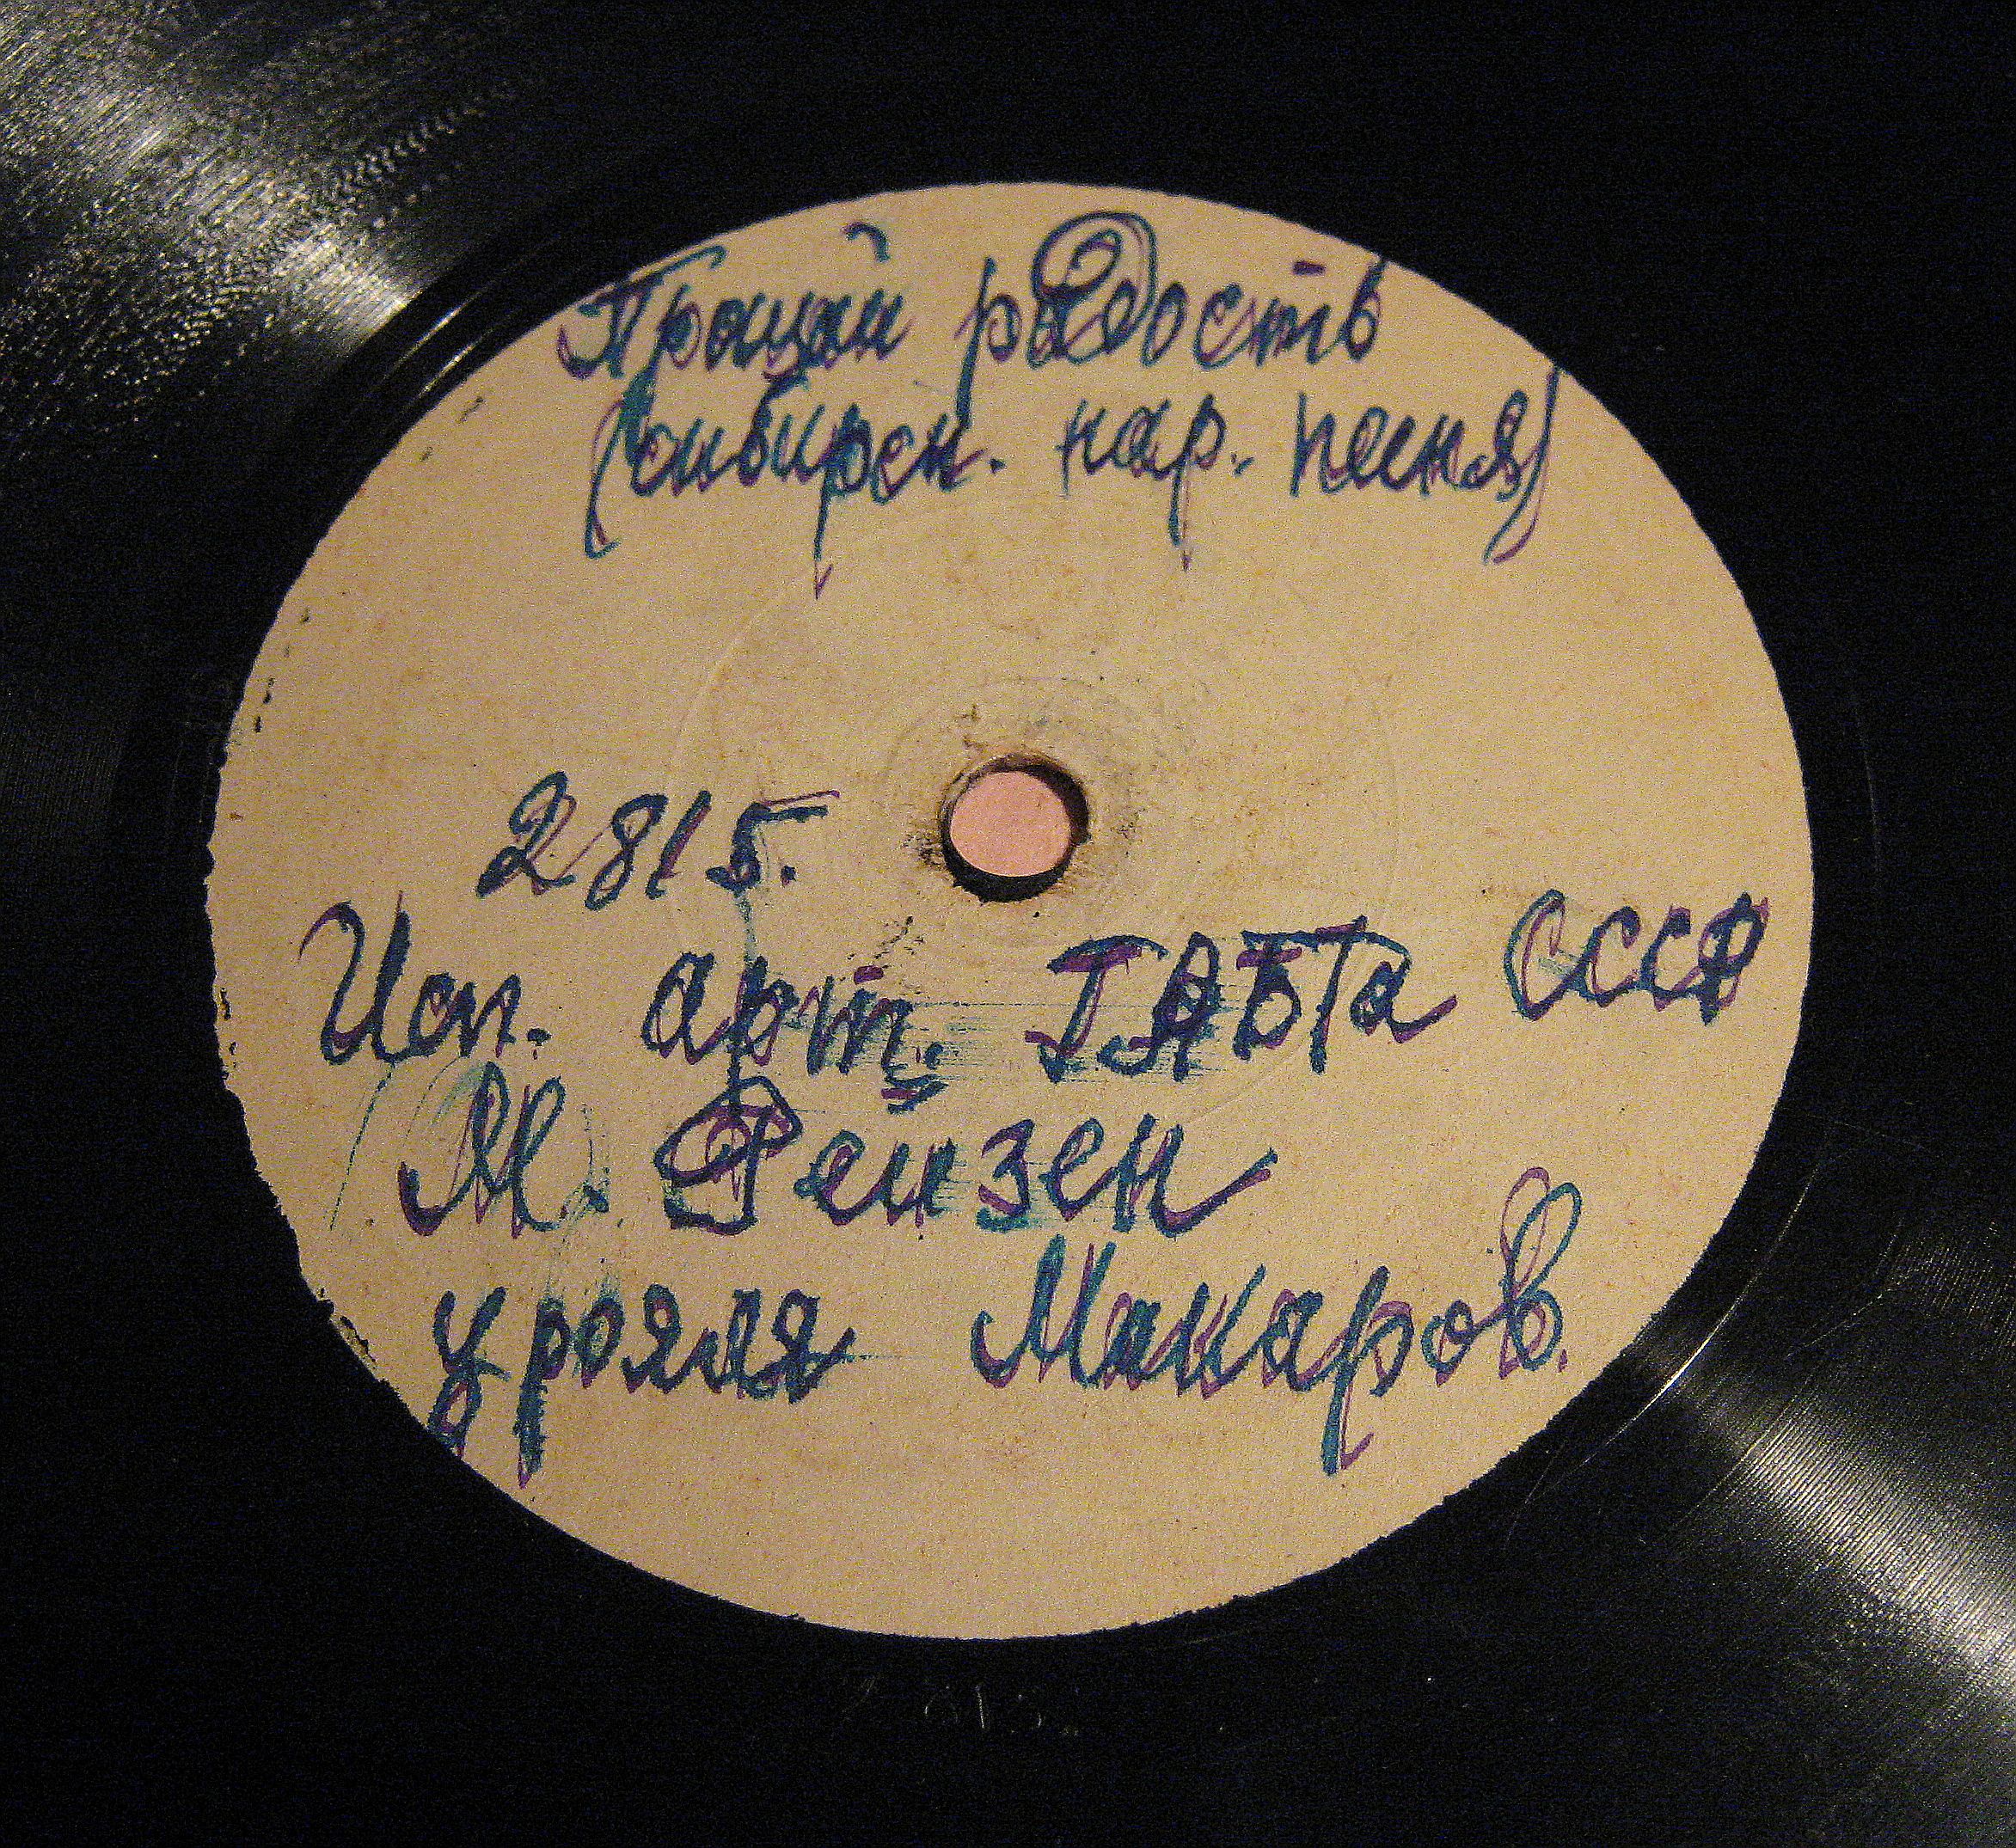 Прощай радость
(сибирск. нар. песня)
2815.
Исп. арт. ГАБТа СССР
М. Рейзен
у рояля Макаров.
2815